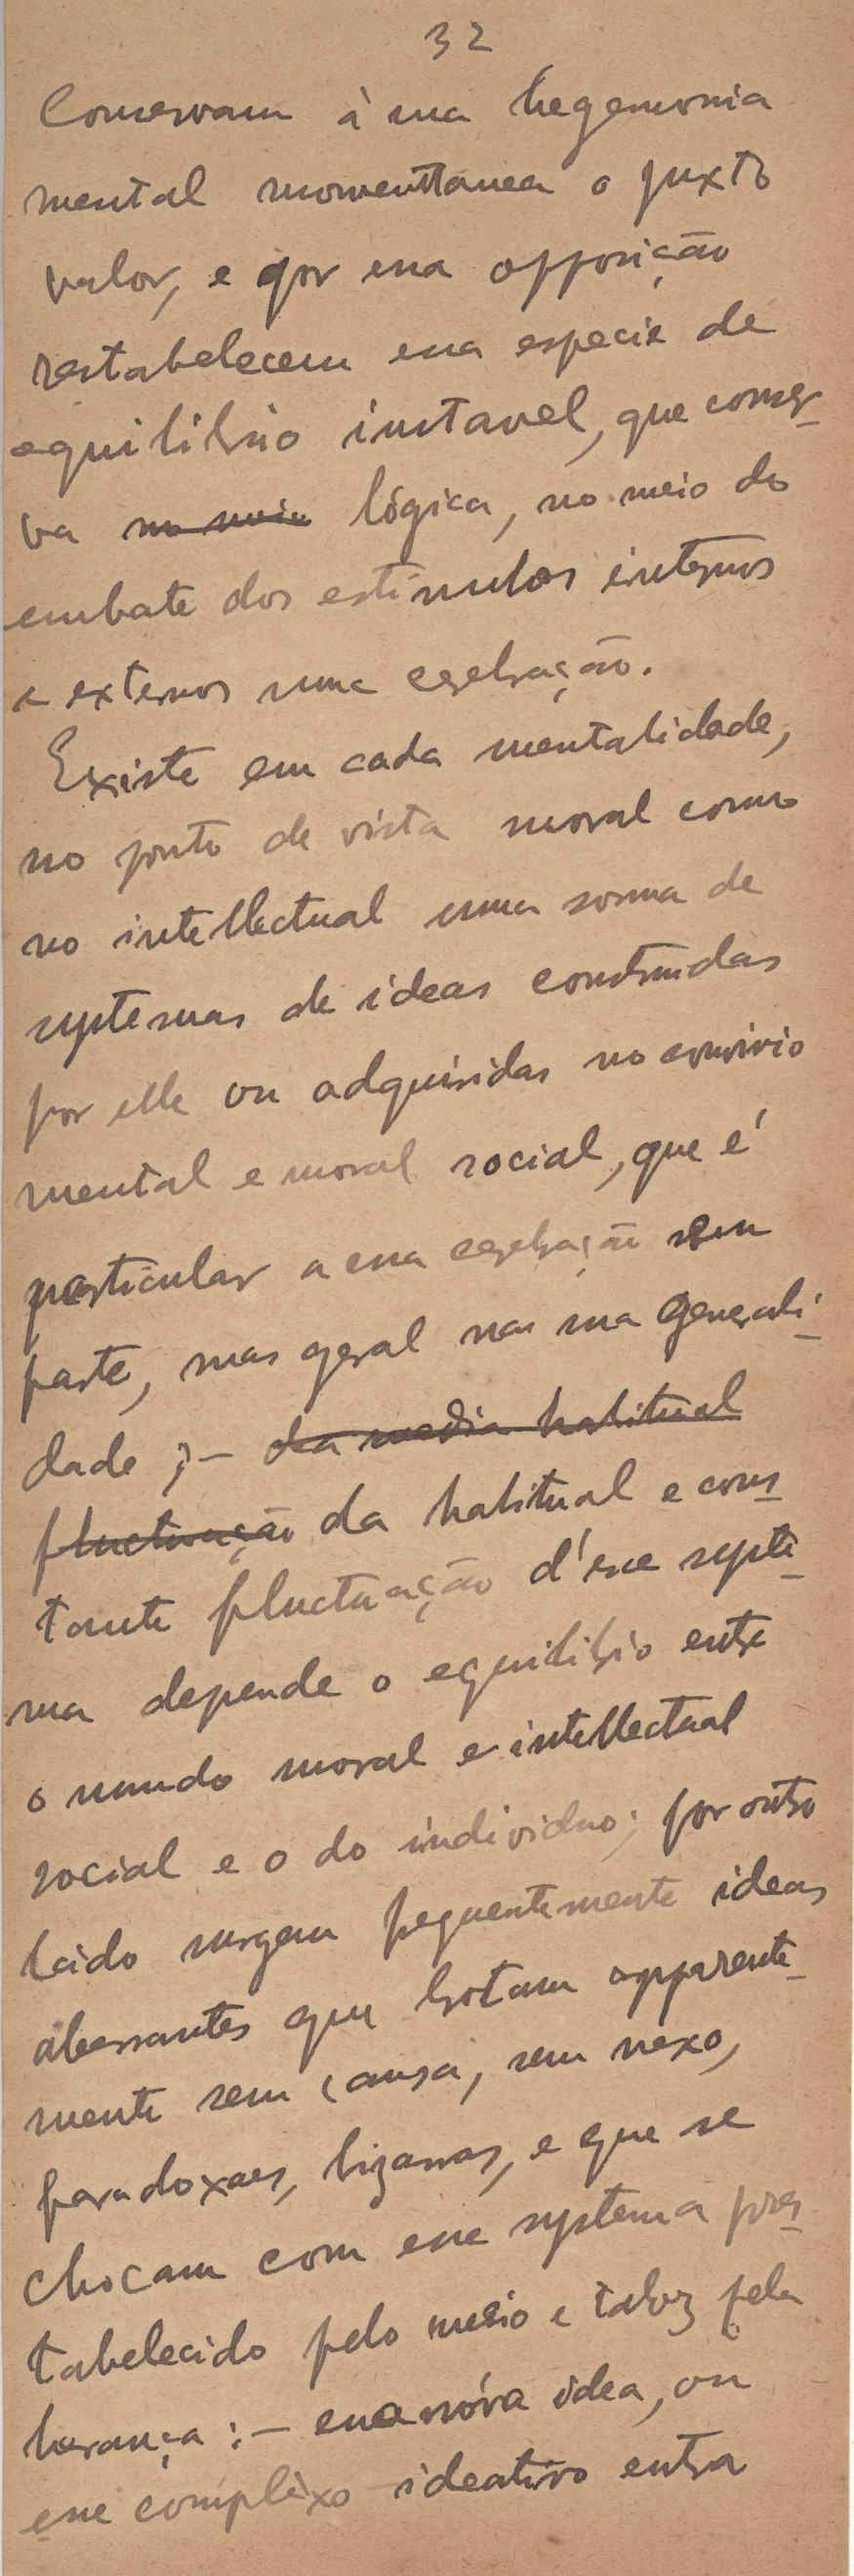 32
Conservam à sua hegemonia
mental momenttanea o juxto
valor, e por essa opposição
restabelecem essa especie de
equilibrio instavel, que conser-
va no meio lógica, no meio do
embate dos estimulos internos
e externos uma cerebração.
Existe em cada mentalidade,
no ponto de vista moral como
no intellectual uma somma de
systemas de ideas construidas
por elle ou adquiridas no convivio
mental e moral social, que é
particular a essa cerebração sem
parte, mas geral na sua generali-
dade ;- da media habitual
fluctuação da habitual e cons-
tante fluctuação d'esse syste-
ma depende o equilibrio entre
o mundo moral e intellectual
social e o do individuo; por outro
lado surgem frequentemente ideas
aberrantes que brotam apparente-
mente sem causa, sem nexo,
paradoxaes, bizarras, e que se
chocam com esse systema pres-
tabelecido pelo meio e talvez pela
herança :- essa nóva idea, ou
esse complexo ideativo entra